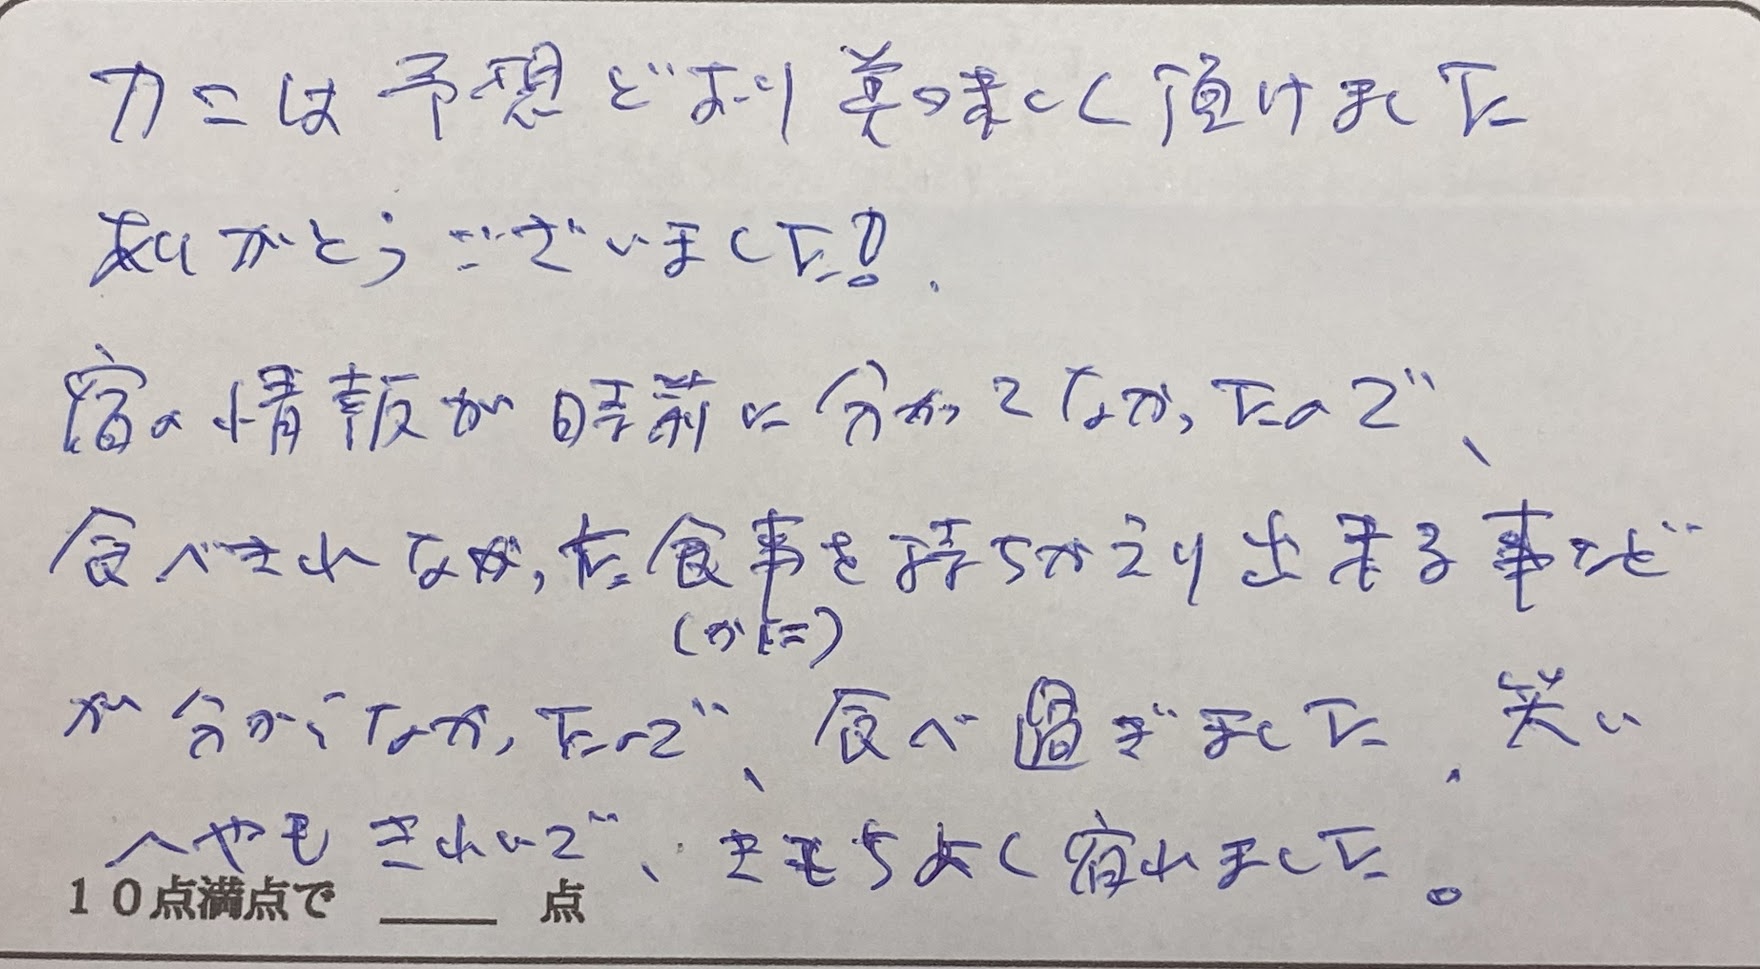 カニは予想どおり美味しく頂けました
ありがとうございました!
宿の情報が時前に分かってなかったので、
食べきれなかった食事を持ちかえり出来る事など
(かに)
が分からなかったので、食べ過ぎました.笑い
へやもきれいで、きもちよく宿れました。
10点満点で ____ 点